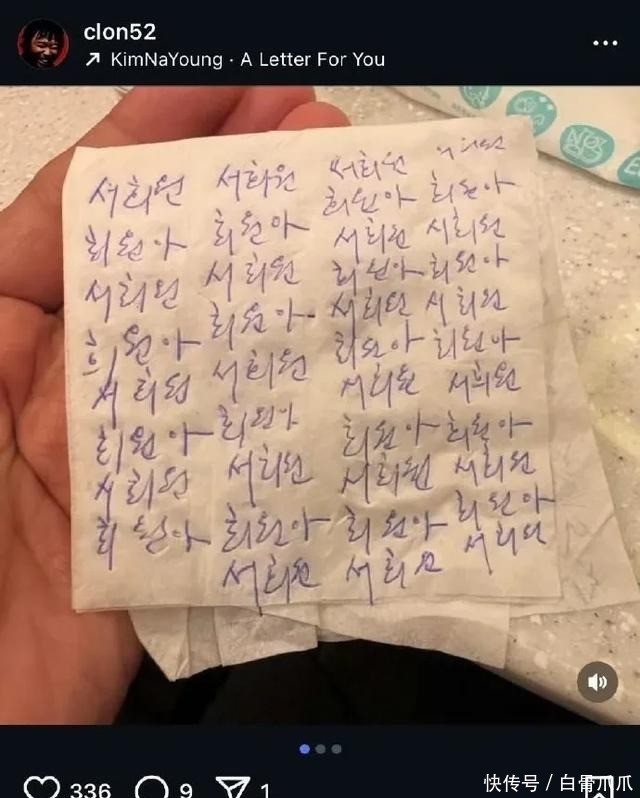 clon52
KimNaYoung · A Letter For You
서희원 서희원 서희원 서희원
희원아 희원아 희원아 희원아
서희원 서희원 서희원 서희원
희원아 희원아 희원아 희원아
서희원 서희원 서희원 서희원
희원아 희원아 희원아 희원아
서희원 서희원 서희원 서희원
희원아 희원아 희원아 희원아
서희원 서희원 서희원
희원아 희원아
서희원 서희원
336 9 1
快传号 / 白骨爪爪